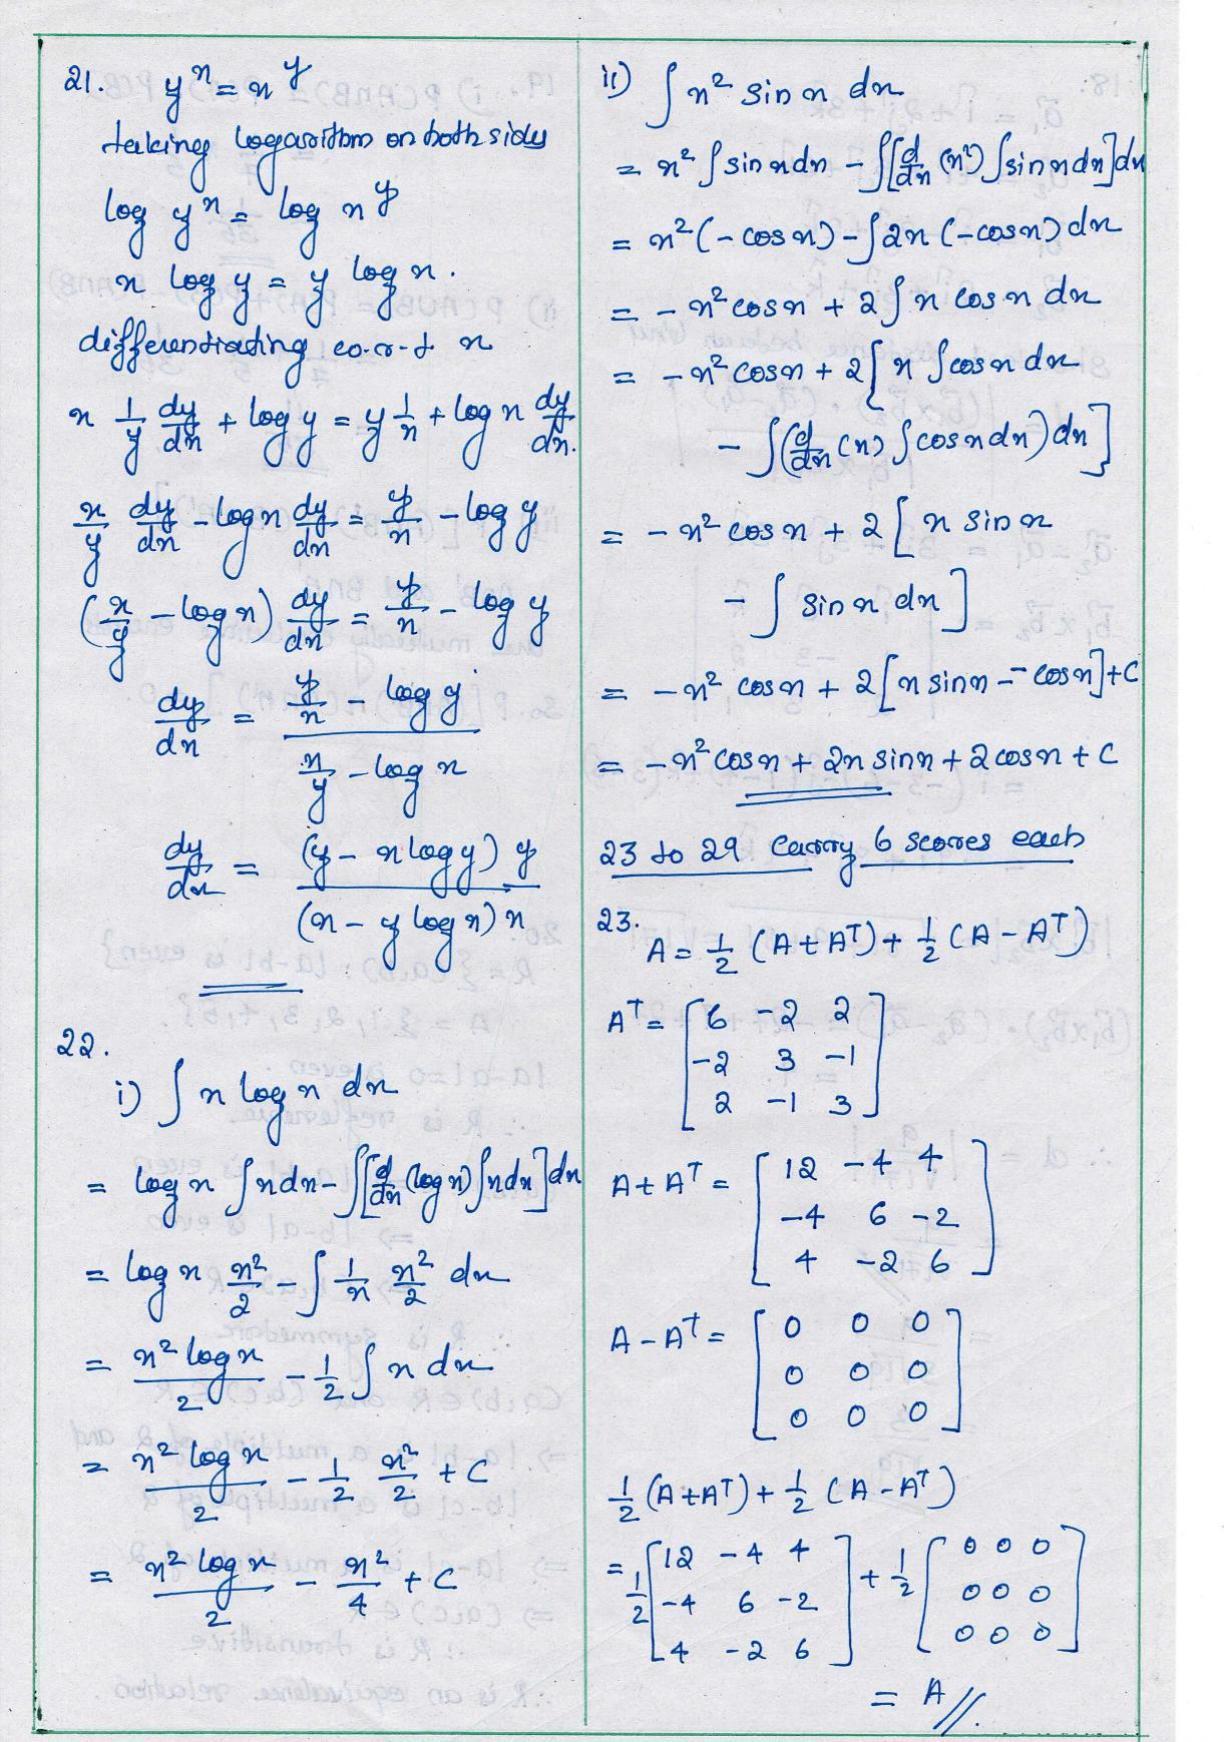 21. y^x = x^y
taking logarithm on both sidy
log y^x = log x^y
x log y = y log x.
differentiating w.r.t x
x 1/y dy/dx + log y = y 1/x + log x dy/dx.
x/y dy/dx - log x dy/dx = y/x - log y
(x/y - log x) dy/dx = y/x - log y
dy/dx = (y/x - log y)/(x/y - log x)
dy/dx = (y - x log y) y/(x - y log x) x
22.
i) ∫ x log x dx
= log x ∫x dx - ∫[d/dx (log x) ∫x dx] dx
= log x x²/2 - ∫ 1/x x²/2 dx
= x² log x/2 - 1/2 ∫ x dx
= x² log x/2 - 1/2 x²/2 + C
= x² log x/2 - x²/4 + C
ii) ∫ x² sin x dx
= x² ∫ sin x dx - ∫[d/dx (x²) ∫ sin x dx] dx
= x² (- cos x) - ∫ 2x (- cos x) dx
= - x² cos x + 2 ∫ x cos x dx
= - x² cos x + 2 [ x ∫ cos x dx
- ∫(d/dx (x) ∫ cos x dx) dx]
= - x² cos x + 2 [ x sin x
- ∫ sin x dx ]
= - x² cos x + 2 [x sin x - - cos x] + C
= - x² cos x + 2x sin x + 2 cos x + C
23 to 29 Carry 6 scores each
23.
A = 1/2 (A + A^T) + 1/2 (A - A^T)
A^T = [6 -2 2
-2 3 -1
2 -1 3]
A + A^T = [12 -4 4
-4 6 -2
4 -2 6]
A - A^T = [0 0 0
0 0 0
0 0 0]
1/2 (A + A^T) + 1/2 (A - A^T)
= 1/2 [12 -4 4 + 1/2 [0 0 0
-4 6 -2 0 0 0
4 -2 6] 0 0 0]
= A //.